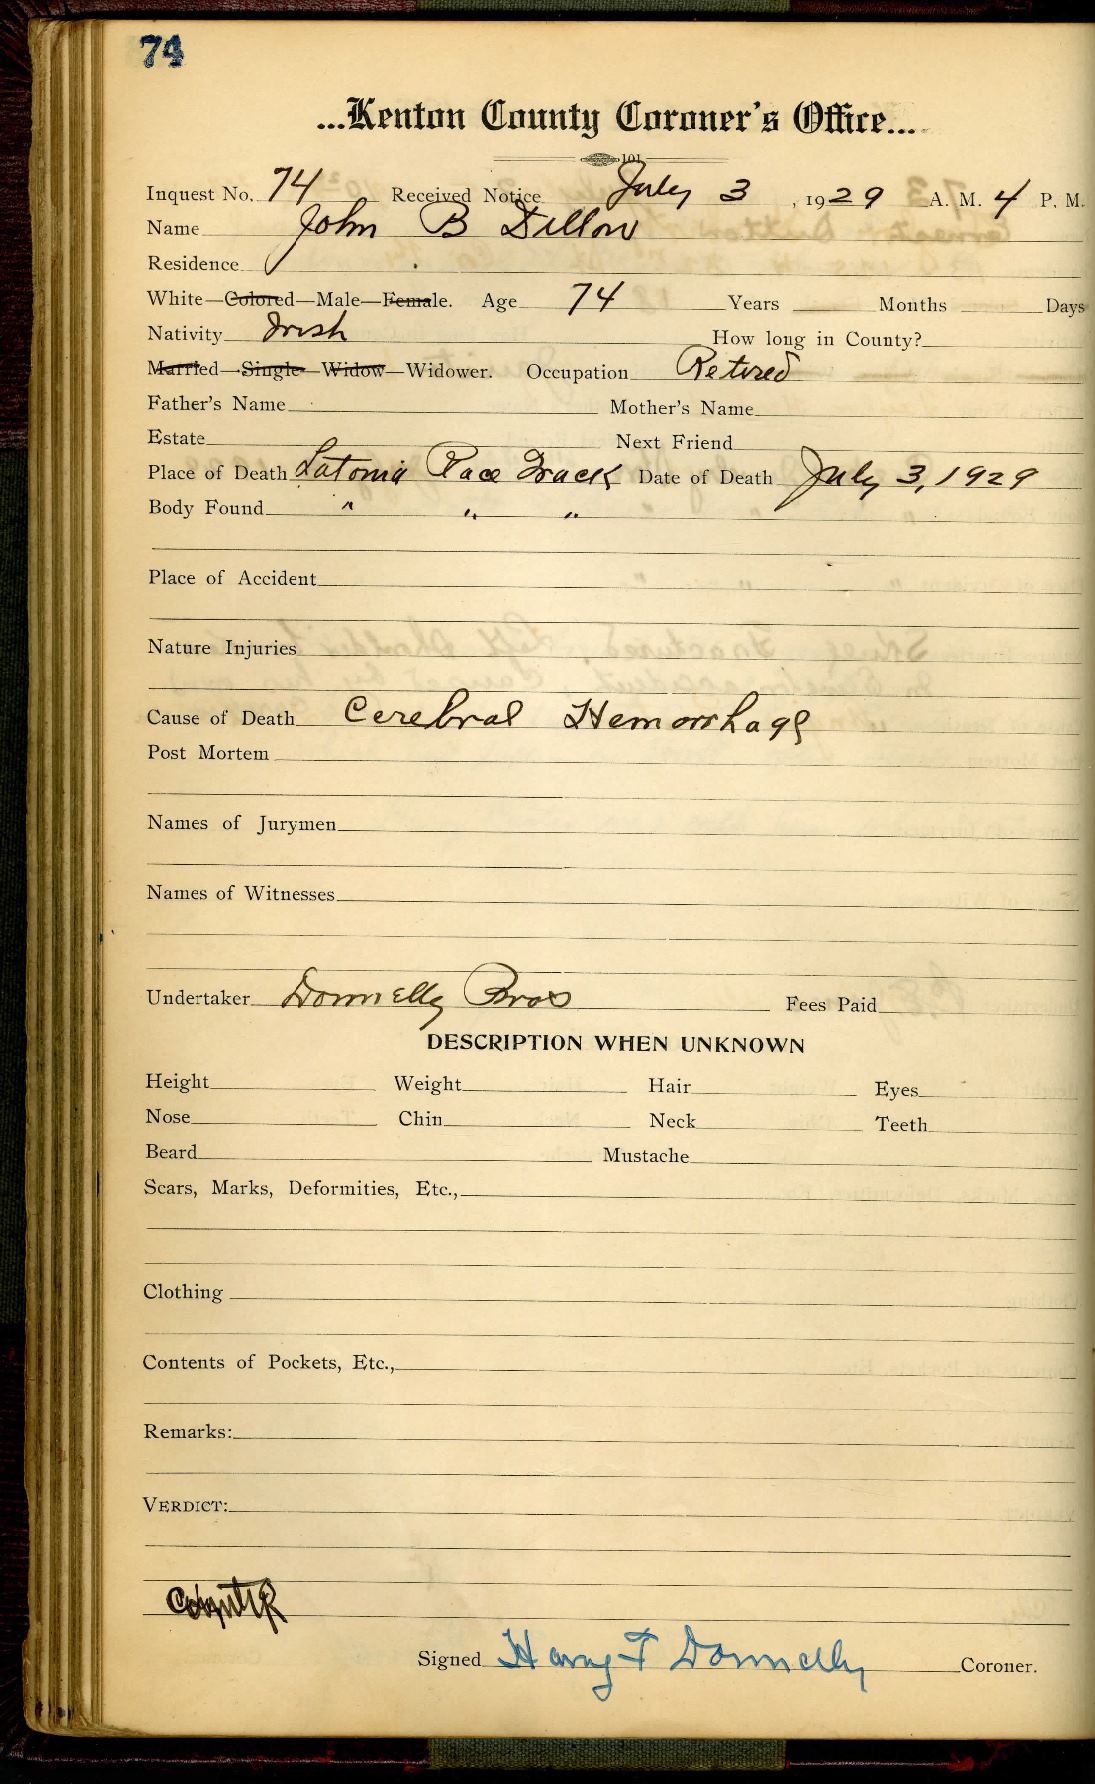 74
...Kenton County Coroner's Office...
101
Inquest No. 74 Received Notice July 3, 1929 A. M. 4 P. M.
Name John B Dillon
Residence
White—Colored—Male—Female. Age 74 Years Months Days
Nativity Irish How long in County?
Married—Single—Widow—Widower. Occupation Retired
Father's Name Mother's Name
Estate Next Friend
Place of Death Latonia Race Track Date of Death July 3, 1929
Body Found " " "
Place of Accident
Nature Injuries
Cause of Death Cerebral Hemorrhage
Post Mortem
Names of Jurymen
Names of Witnesses
Undertaker Donnelly Bros Fees Paid
DESCRIPTION WHEN UNKNOWN
Height Weight Hair Eyes
Nose Chin Neck Teeth
Beard Mustache
Scars, Marks, Deformities, Etc.,
Clothing
Contents of Pockets, Etc.,
Remarks:
VERDICT:
Signed Harry F Donnelly Coroner.